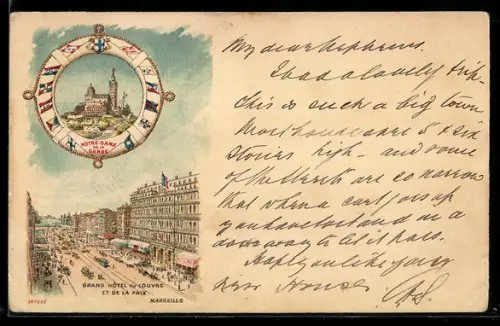 NOTRE-DAME
DE LA
GARDE
GRAND HÔTEL DU LOUVRE
ET DE LA PAIX
MARSEILLE
My dear Nephews.
I had a lovely trip -
this is such a big town
Most houses are 5 & six
stories high - and some
of the streets are so narrow
that when a cart goes up
you have to stand in a
doorway to let it pass.
Hope you like your
new House